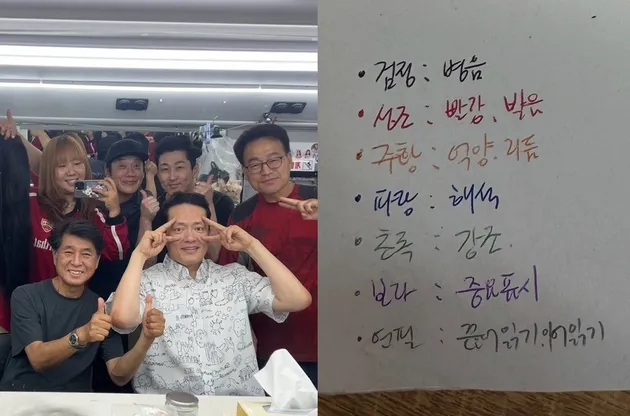 • 검정 : 병음
• 성조 : 빨강, 발음
• 주황 : 억양. 리듬
• 파랑 : 해석
• 초록 : 강조.
• 보라 : 중요표시
• 연필 : 끊어읽기.이어읽기